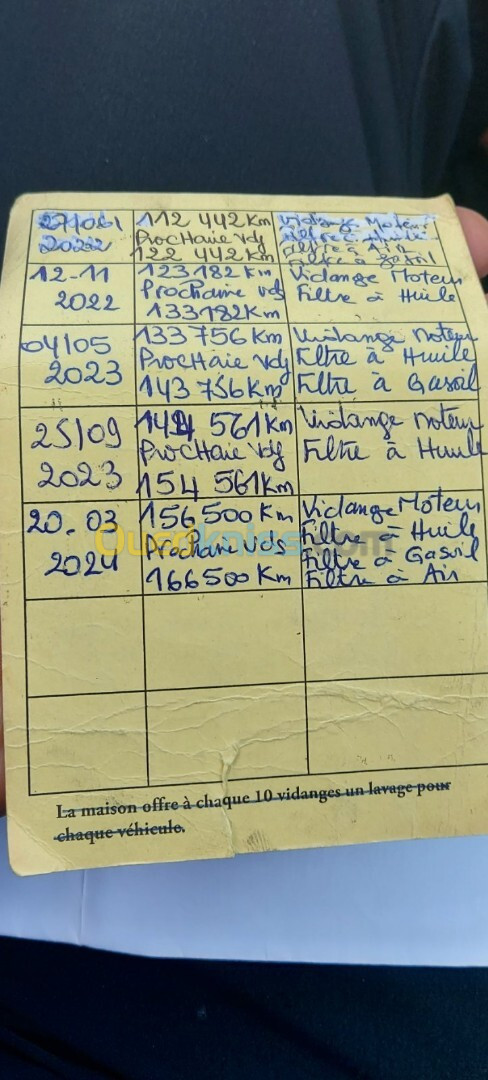 27/06/
2022
112 442 Km
ProcHaie vdj
122 442 Km
Vidange Moteur
Filtre à Huile
Filtre à Air
Filtre à Gasoil
12-11
2022
123 182 Km
Prochaine vdj
133182 Km
Vidange Moteur
Filtre à Huile
04/05
2023
133 756 Km
ProcHaie Vdj
143 756 Km
Vidange Moteur
Filtre à Huile
Filtre à Gasoil
25/09
2023
144 561 Km
ProcHaie Vdj
154 561 Km
Vidange Moteur
Filtre à Huile
20.03
2024
156500 Km
Prochaine vds
166500 Km
Vidange Moteur
Filtre à Huile
Filtre à Gasoil
Filtre à Air
Ouedkniss.com
La maison offre à chaque 10 vidanges un lavage pour
chaque véhicule.